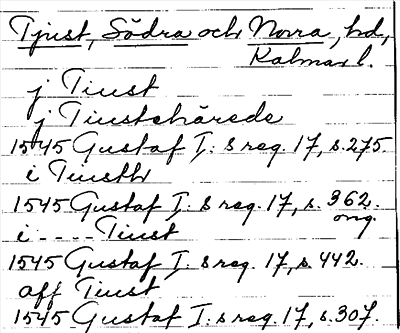 Tjust, Södra och Norra, hd,
Kalmar l.
j Tiust
j Tiustehärede
1545 Gustaf I:s reg. 17, s. 275.
i Tiusth
1545 Gustaf I:s reg. 17, s. 362.
orig.
i - - - - Tiust
1545 Gustaf I:s reg. 17, s. 442.
aff Tiust
1545 Gustaf I:s reg. 17, s. 307.